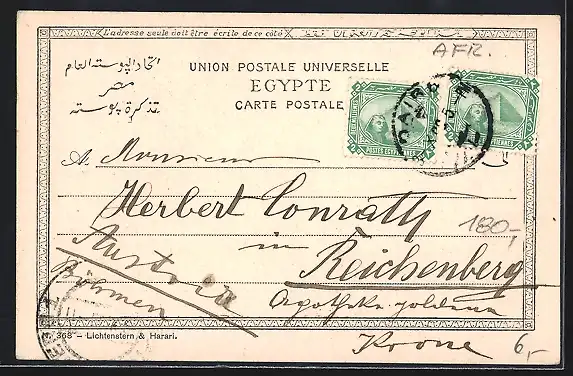 L'adresse seule doit être écrite de ce côté
AFR.
اتحاد البوسته العام
مصر
تذكرة بوسته
UNION POSTALE UNIVERSELLE
EGYPTE
CARTE POSTALE
POSTES EGYPTIENNES
CAIRO
A. Monsieur
Herbert Conrath
180,-
in
Reichenberg
Austria
Böhmen
Apotheke goldene
Krone
6,-
N. 368 - Lichtenstern & Harari.